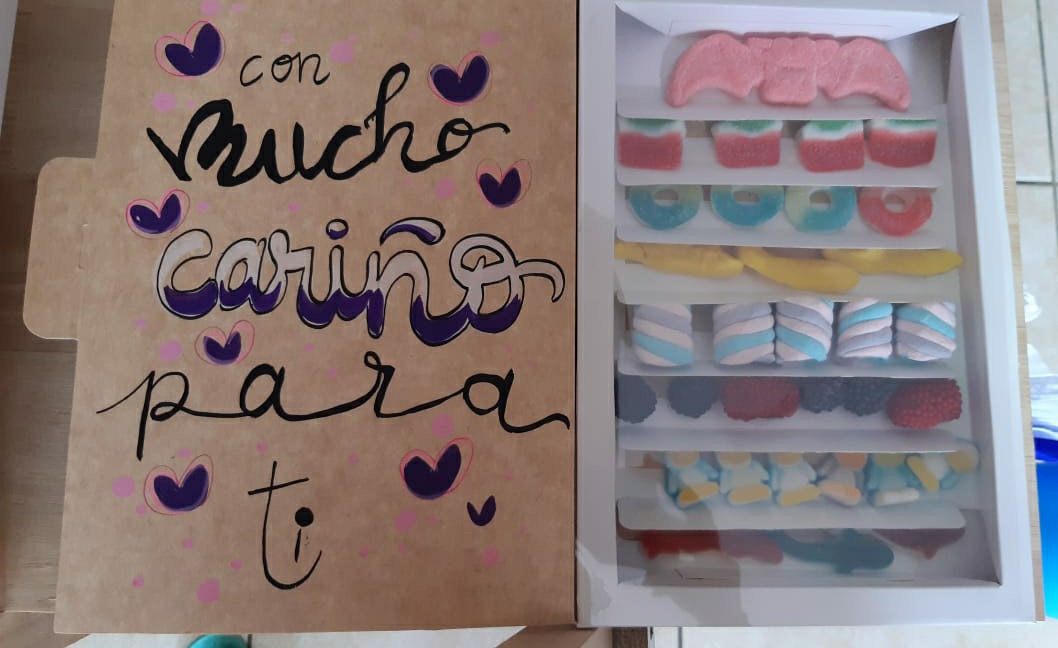 con
mucho
cariño
para
ti